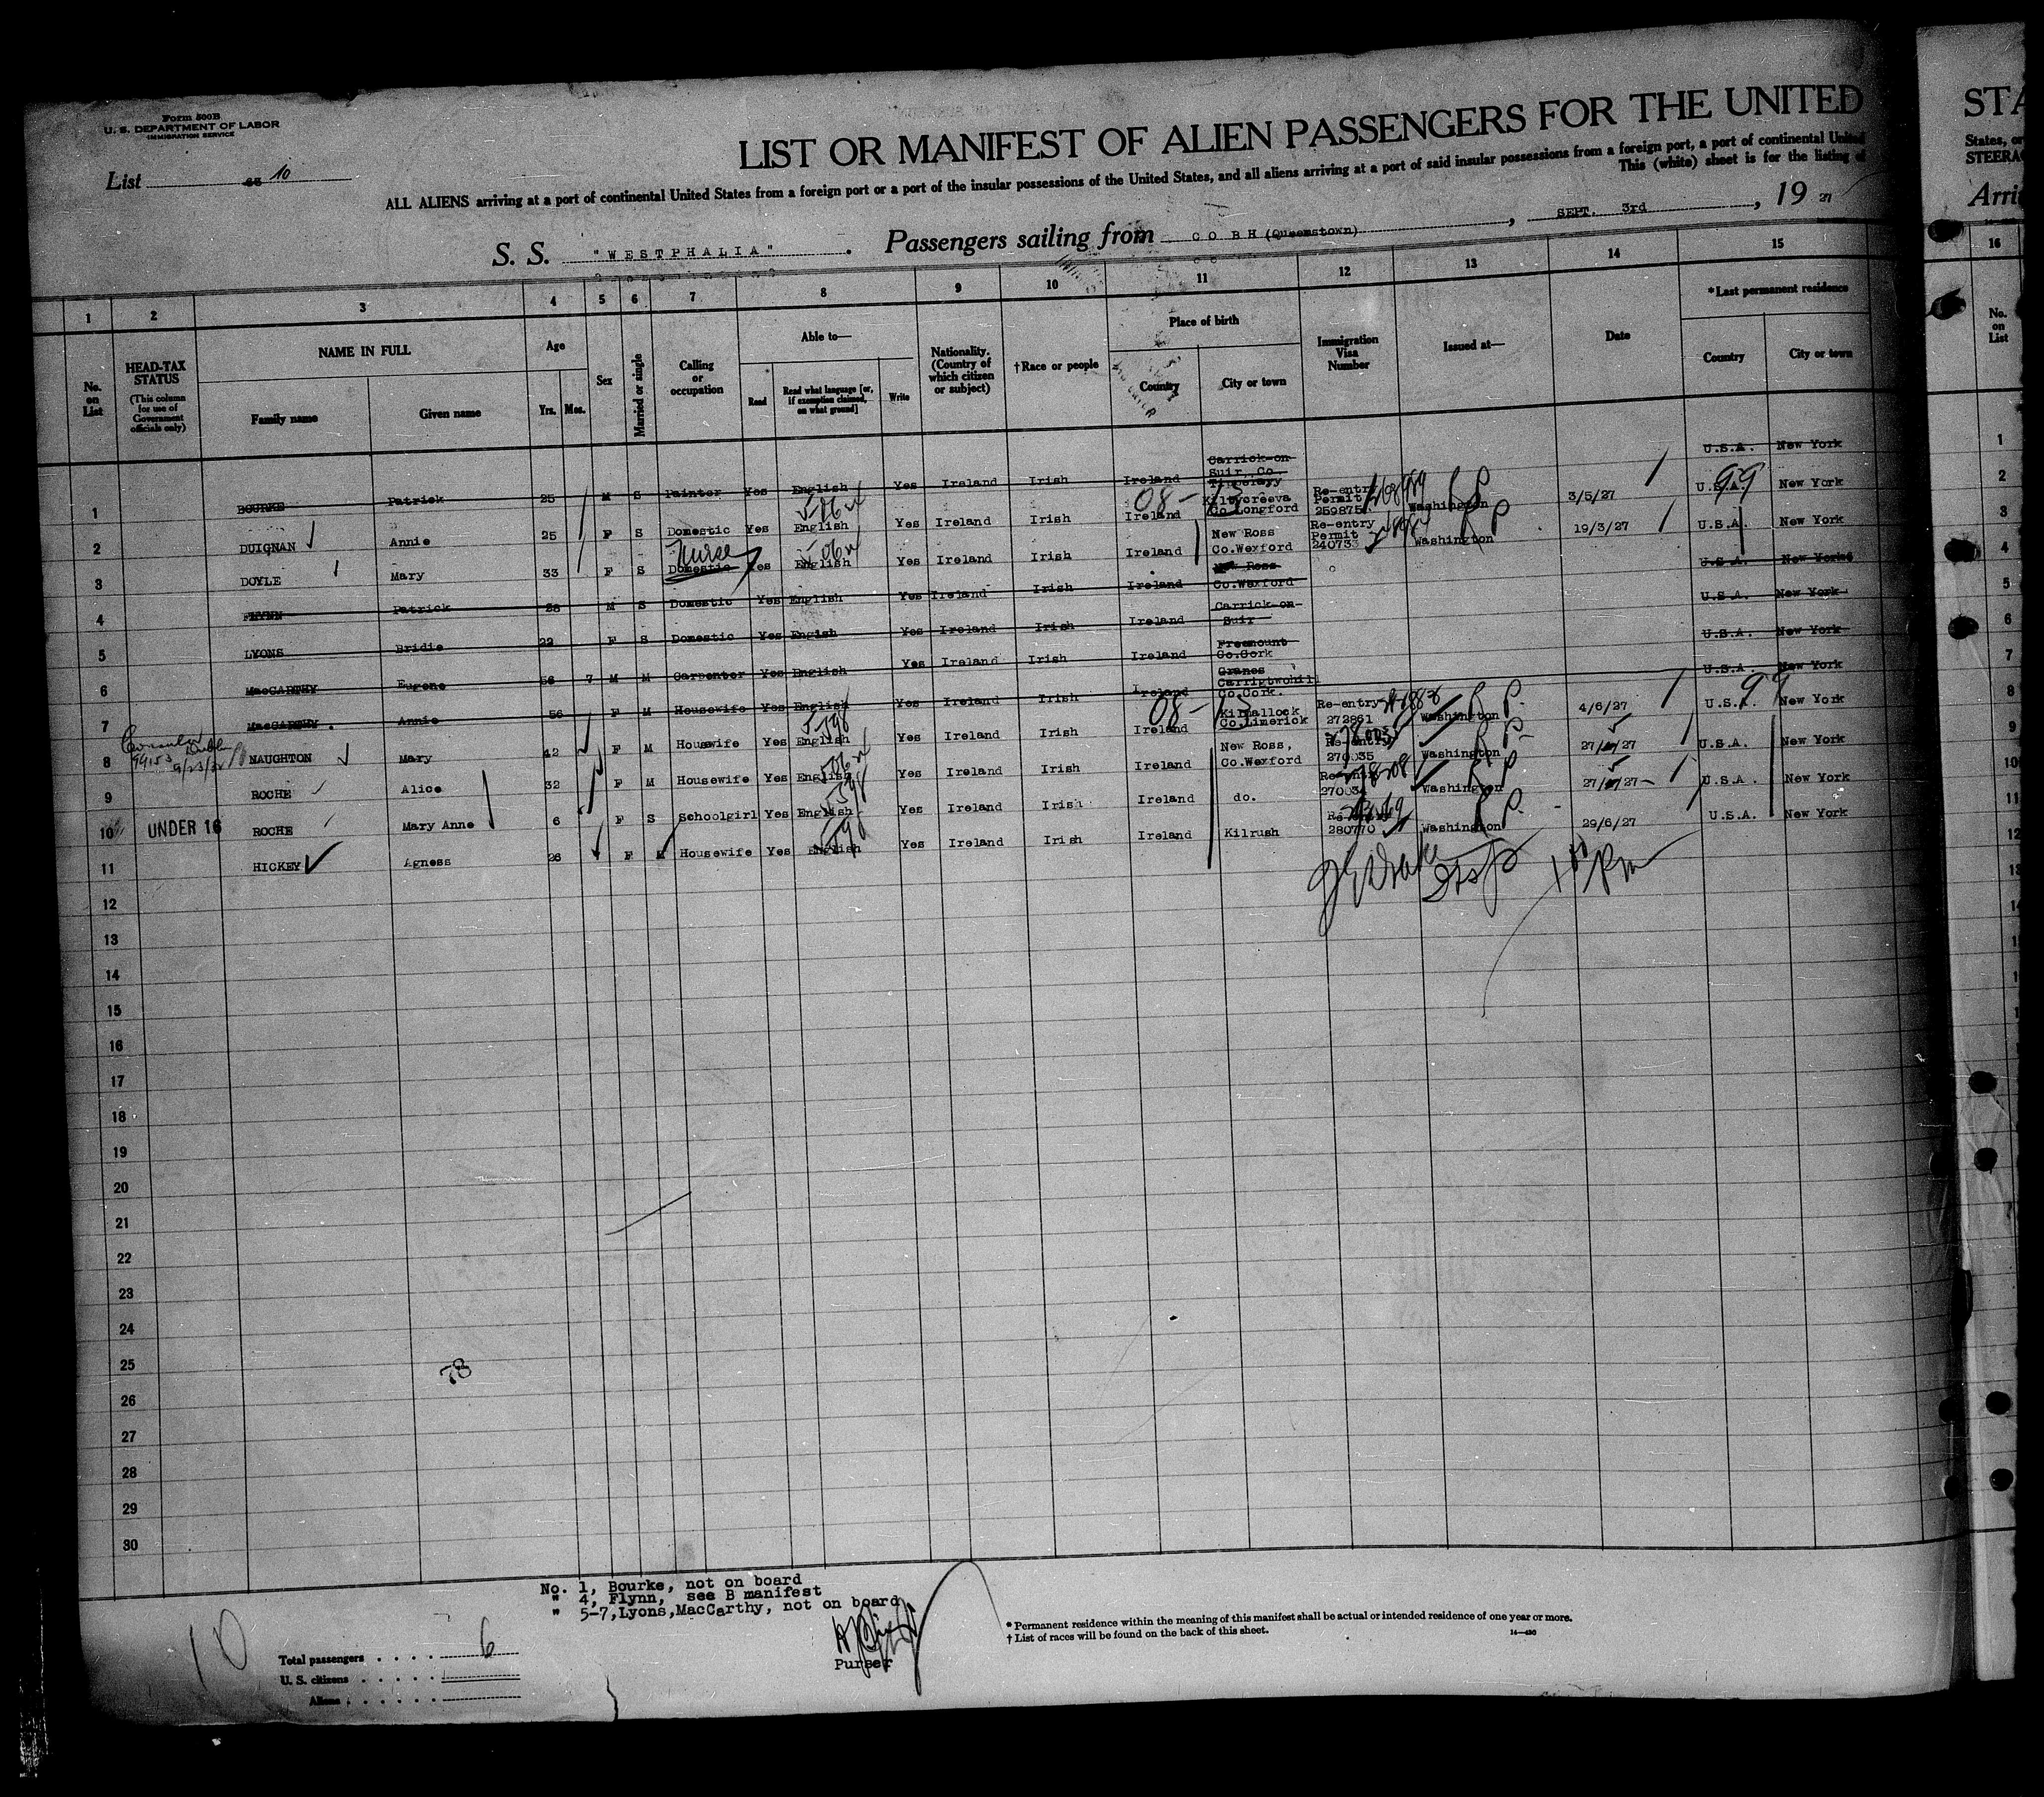 Form 500B
U. S. DEPARTMENT OF LABOR
IMMIGRATION SERVICE
List 10
LIST OR MANIFEST OF ALIEN PASSENGERS FOR THE UNITED
STA
ALL ALIENS arriving at a port of continental United States from a foreign port or a port of the insular possessions of the United States, and all aliens arriving at a port of said insular possessions from a foreign port, a port of continental United
States, or
This (white) sheet is for the listing of
STEERA
S. S. "WESTPHALIA". Passengers sailing from COBH (Queenstown), SEPT. 3rd, 19 27
Arri
1 2 3 4 5 6 7 8 9 10 11 12 13 14 15 16
No. on List
HEAD-TAX STATUS (This column for use of Government officials only)
NAME IN FULL
Family name Given name
Age Yrs. Mos.
Sex
Married or single
Calling or occupation
Able to—
Read Read what language [or, if exemption claimed, on what ground] Write
Nationality. (Country of which citizen or subject)
†Race or people
Place of birth
Country City or town
Immigration Visa Number
Issued at—
Date
*Last permanent residence
Country City or town
No. on List
1 BOURKE Patrick 25 M S Painter Yes English Yes Ireland Irish Ireland Carrick-on-Suir Co. Tipperary U.S.A. New York
2 DUIGNAN Annie 25 F S Domestic Yes English Yes Ireland Irish Ireland Kiltycreeva Co.Longford Re-entry Permit 259875 Washington 3/5/27 U.S.A. New York
3 DOYLE Mary 33 F S Domestic Nurse Yes English Yes Ireland Irish Ireland New Ross Co.Wexford Re-entry Permit 240733 Washington 19/3/27 U.S.A. New York
4 Patrick 28 M S Domestic Yes English Yes Ireland Irish Ireland New Ross Co.Wexford U.S.A. New York
5 LYONS Bridie 22 F S Domestic Yes Engish Yes Ireland Irish Ireland Carrick-on-Suir U.S.A. New York
6 MacCARTHY Eugene 56 7 M M Carpenter Yes English Yes Ireland Irish Ireland Freemount Co.Cork U.S.A. New York
7 MacCARTHY. Annie 56 F M Housewife Yes English Yes Ireland Irish Ireland Carrigtwohill Co.Cork. U.S.A. New York
8 NAUGHTON Mary 42 F M Housewife Yes English Yes Ireland Irish Ireland Kilmallock Co.Limerick Re-entry 272861 Washington 4/6/27 U.S.A. New York
9 ROCHE Alice 32 F M Housewife Yes English Yes Ireland Irish Ireland New Ross, Co.Wexford Re-entry 270035 Washington 27/5/27 U.S.A. New York
10 UNDER 16 ROCHE Mary Anne 6 F S Schoolgirl Yes English Yes Ireland Irish Ireland do. Re-entry 270034 Washington 27/5/27 U.S.A. New York
11 HICKEY Agness 26 F M Housewife Yes English Yes Ireland Irish Ireland Kilrush Re-entry 280770 Washington 29/6/27 U.S.A. New York
12
13
14
15
16
17
18
19
20
21
22
23
24
25
26
27
28
29
30
78
No. 1, Bourke, not on board
" 4, Flynn, see B manifest
" 5-7, Lyons, MacCarthy, not on board
Purser
10
Total passengers . . . . 6
U. S. citizens . . . . .
Aliens . . . . . .
* Permanent residence within the meaning of this manifest shall be actual or intended residence of one year or more.
† List of races will be found on the back of this sheet.
14—430